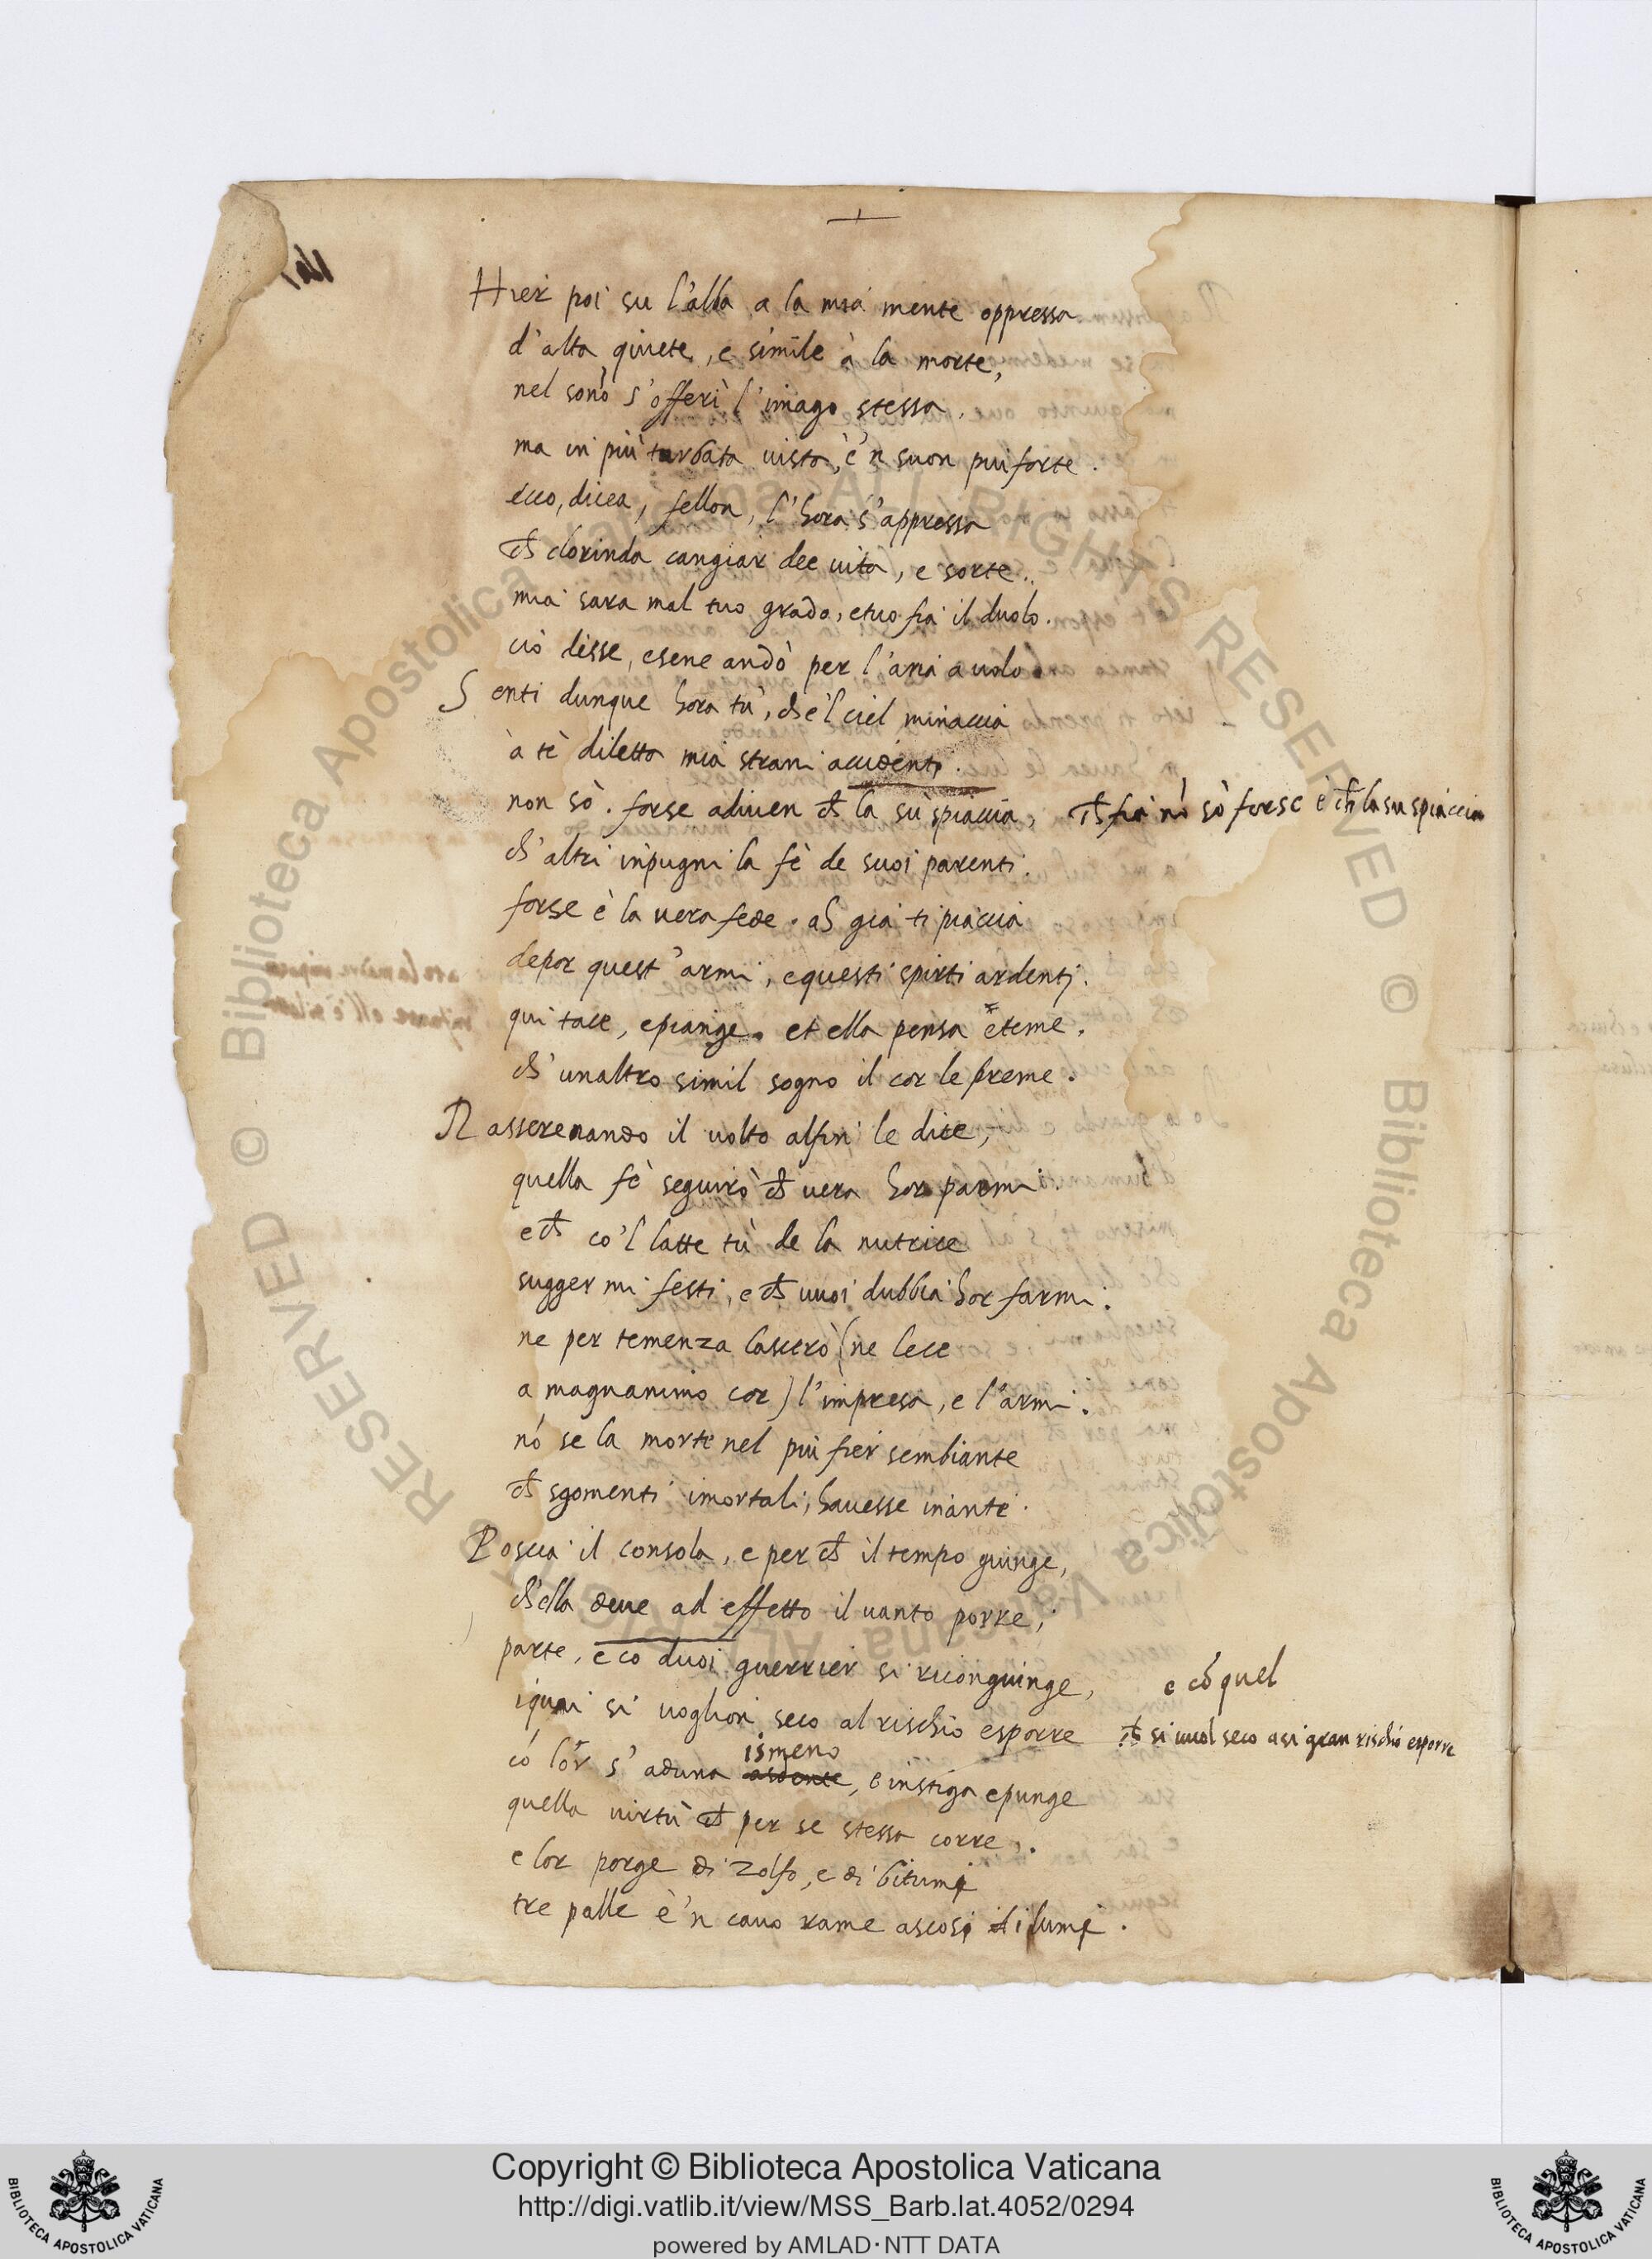 Hier poi su l'alba a la mia mente oppressa
d'alta quiete, e simile à la morte,
nel sonō s'offerì l'imago stessa.
ma in più turbata uista, è'n suon piu forte.
ecco, dicea, fellon, l'hora s'appressa
ch̄ clorinda cangiar dee uita, e sorte.
mia sara mal tuo grado, e tuo fia il duolo.
ciò disse, e sene andò per l'aria a uolo
Senti dunque hora tù, ch'e'l ciel minaccia
à tè diletta mia strani accidenti.
non sò. forse adiuen ch̄ la sù spiaccia,
ch̄ fia nō sò forse è ch̄ la su spiaccia
ch'altri inpugni la fè de suoi parenti.
forse è la uera fede. ah gia ti piaccia
depor quest'armi, e questi spirti ardenti.
qui tace, e piange. et ella pensa e teme,
ch'unaltro simil sogno il cor le preme.
Rasserenando il uolto alfin le dice,
quella fè seguirò ch̄ uera hor parmi.
e ch̄ co'l latte tù de la nutrice
sugger mi festi, e ch̄ uuoi dubbia hor farmi.
ne per temenza lascerò (ne lece
a magnanimo cor) l'impresa, e l'armi.
nō se la morte nel più fier sembiante
ch̄ sgomenti i mortali, hauesse inante.
Poscia il consola, e per ch̄ il tempo giunge,
ch'ella deue ad effetto il uanto porre,
parte, e co duoi guerrier si ricongiunge,
e cō quel
iquai si uoglion seco al rischio esporre
ch̄ si uuol seco a si gran rischio esporre
ismeno
cō lor s'aduna ardente, e instiga e punge
quella uirtù ch̄ per se stessa corre.
e lor porge di zolfo, e di bitumi
tre palle è'n cauo rame ascosi i lumi.
Copyright © Biblioteca Apostolica Vaticana
http://digi.vatlib.it/view/MSS_Barb.lat.4052/0294
powered by AMLAD·NTT DATA
BIBLIOTECA APOSTOLICA VATICANA
BIBLIOTECA APOSTOLICA VATICANA